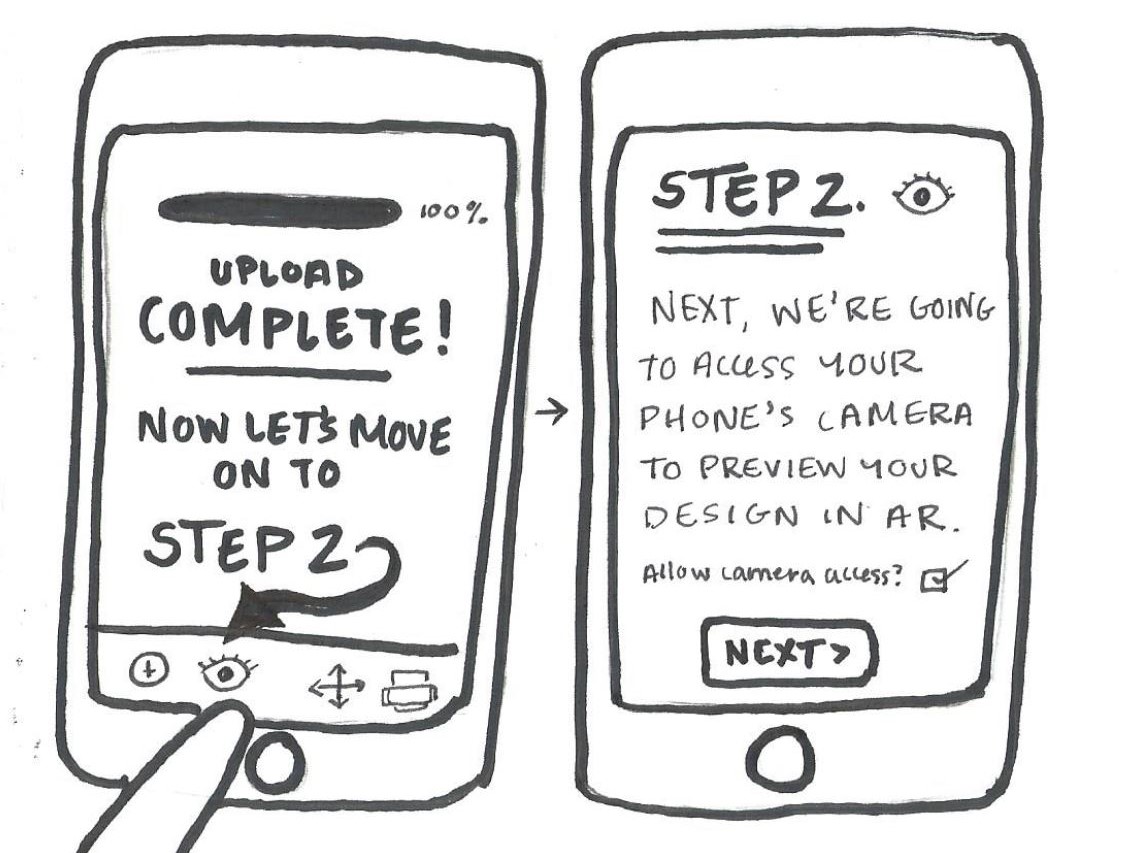 100%
UPLOAD
COMPLETE!
NOW LET'S MOVE
ON TO
STEP 2
STEP 2.
NEXT, WE'RE GOING
TO ACCESS YOUR
PHONE'S CAMERA
TO PREVIEW YOUR
DESIGN IN AR.
Allow camera access?
NEXT >